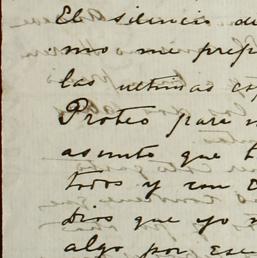 El silencio de
mo me prep
las ultimas es
Proteo para
asunto que t
todos y con
dios que yo n
algo por ese